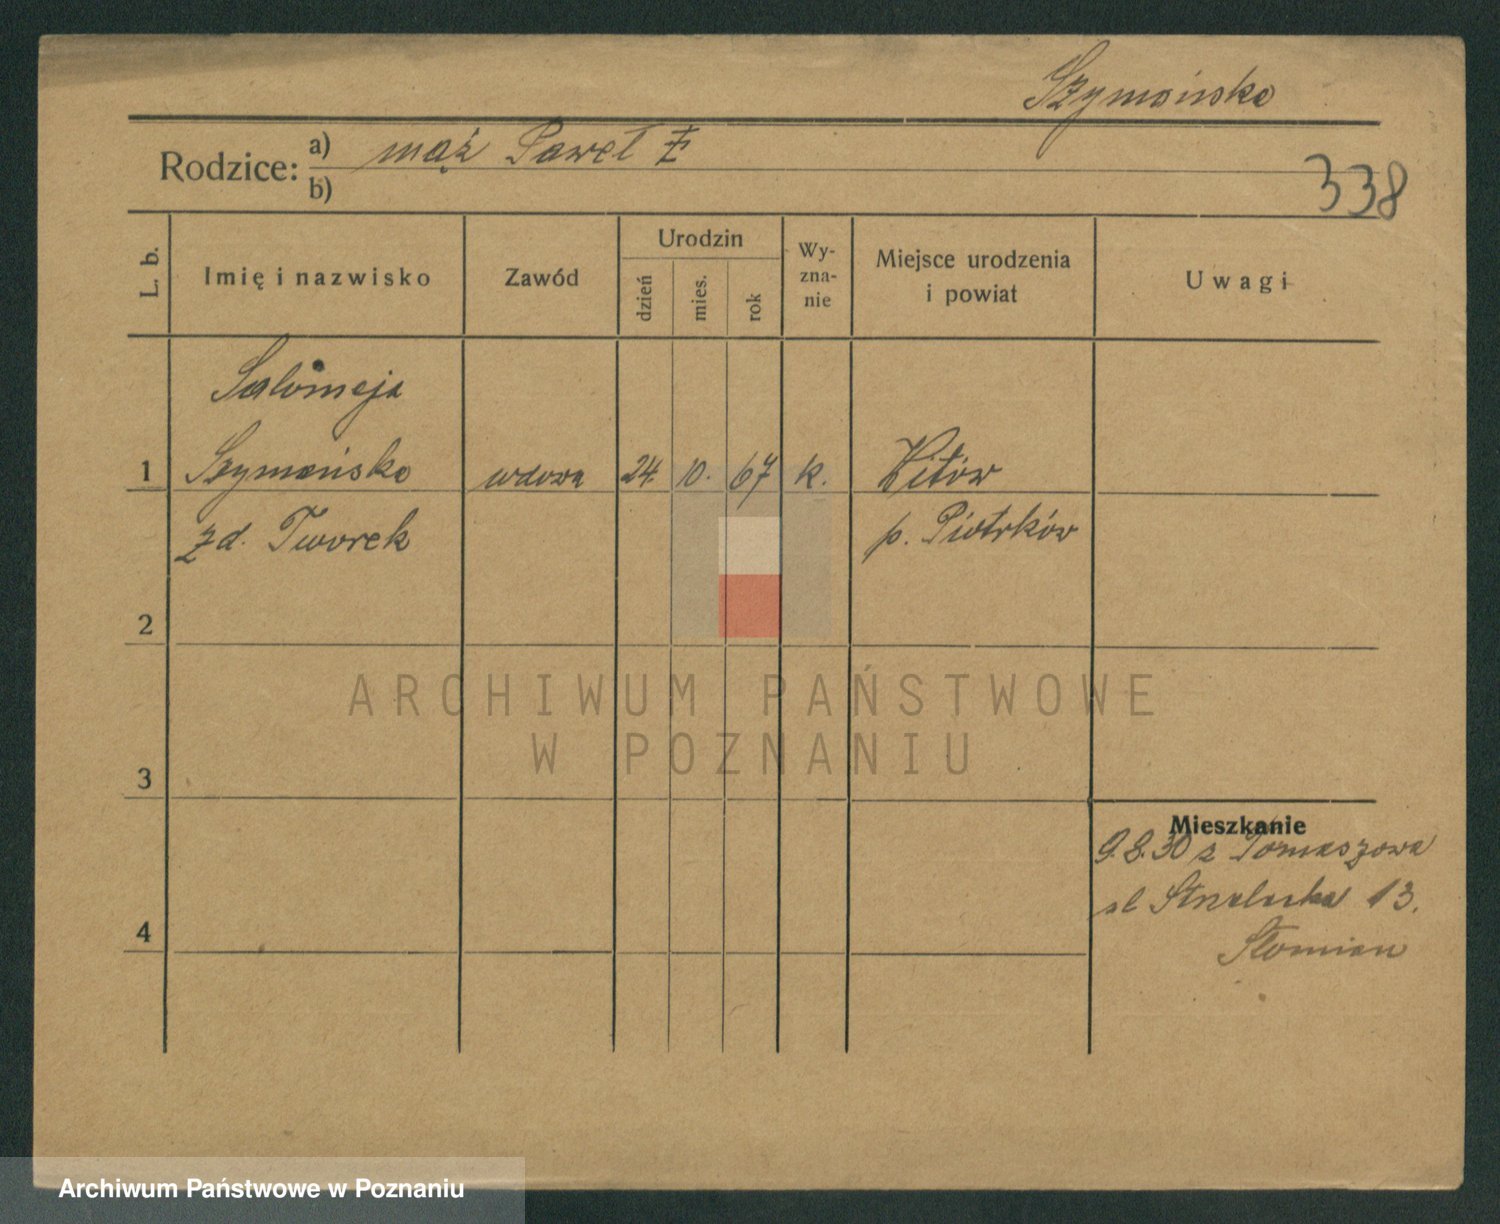 Szymańska
Rodzice: a) mąż Paweł
b)
338
L. b.
Imię i nazwisko
Zawód
Urodzin
dzień
mies.
rok
Wy-
zna-
nie
Miejsce urodzenia
i powiat
Uwagi
Salomeja
1 Szymańska wdowa 24. 10. 67 k. Witów
zd. Tworek p. Piotrków
2
3
4
Mieszkanie
9.8.30 z Tomaszowa
13.
Słomian
ARCHIWUM PAŃSTWOWE
W POZNANIU
Archiwum Państwowe w Poznaniu